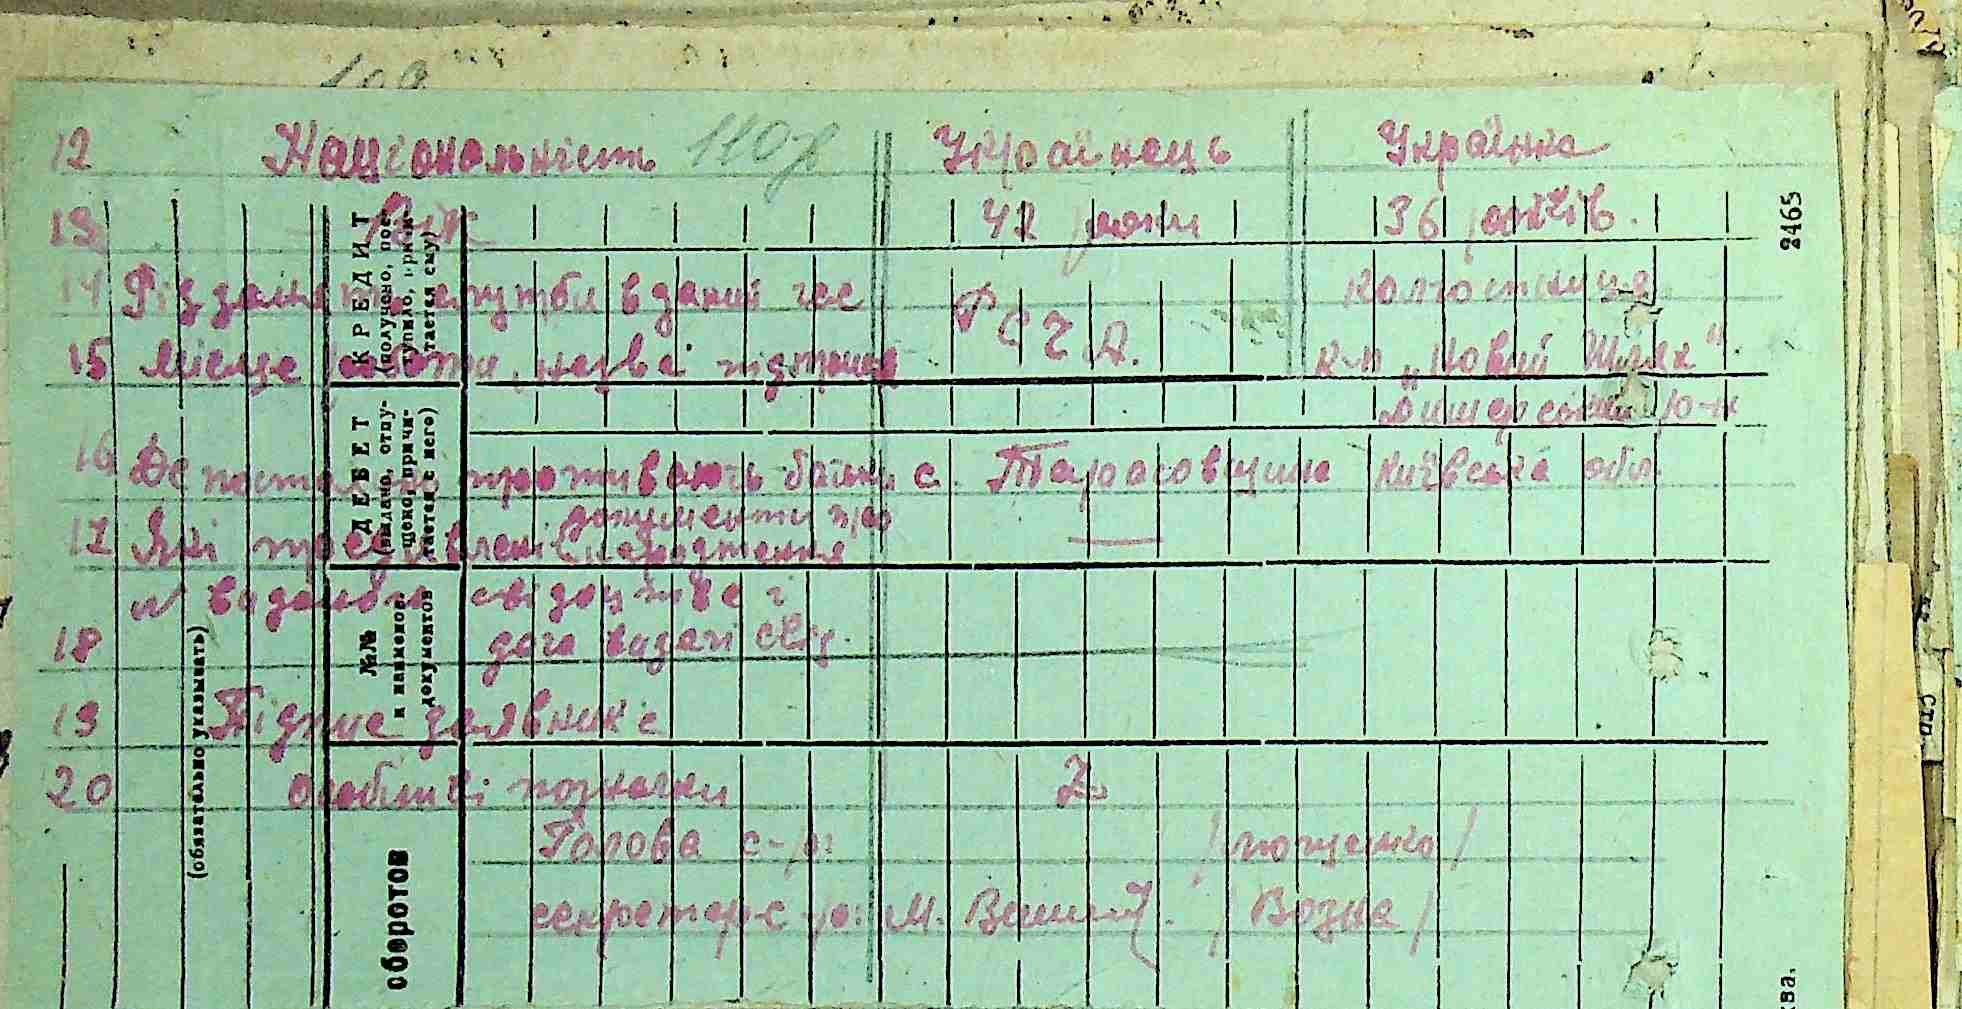 109
12 Национольність 110 Украінець Українка
13 Вік 42 роки 36 років.
14 Рід занять служби в даний час Р С Ч А. колгостниця
15 місце роботи, назва підпр к-п „Новий Шлях"
Димерський р-н
16 Де постійно проживають батьки с. Тарасовщина Київська обл.
документи про
17 Які пред'явлені народження —
№ виданого свідоцтва і
18 дата видачі свід.
19 Підпис заявника
20 особливі позначки Z
Голова с-р: / /
секретар с-р: М. / Возна /
2465
КРЕДИТ
(получено, пос-
тупило, причи-
тается ему)
ДЕБЕТ
(выдано, отпу-
щено, причи-
тается с него)
№№
и наименов.
документов
(обязательно указывать)
оборотов
ква.